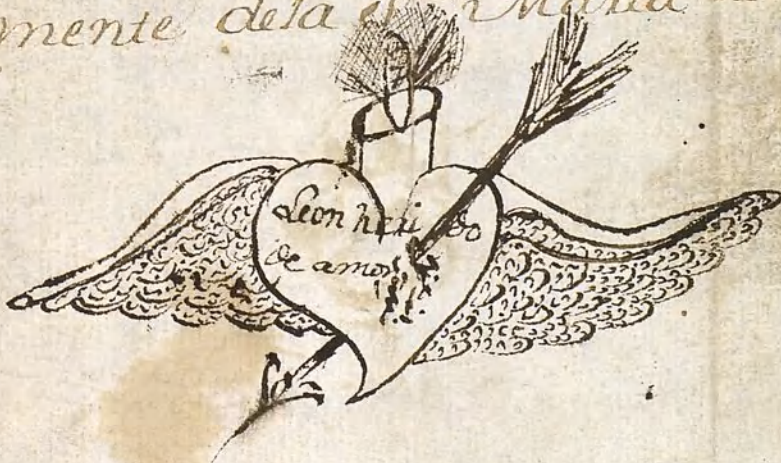 mente dela Maria
Leon heri do
de amor